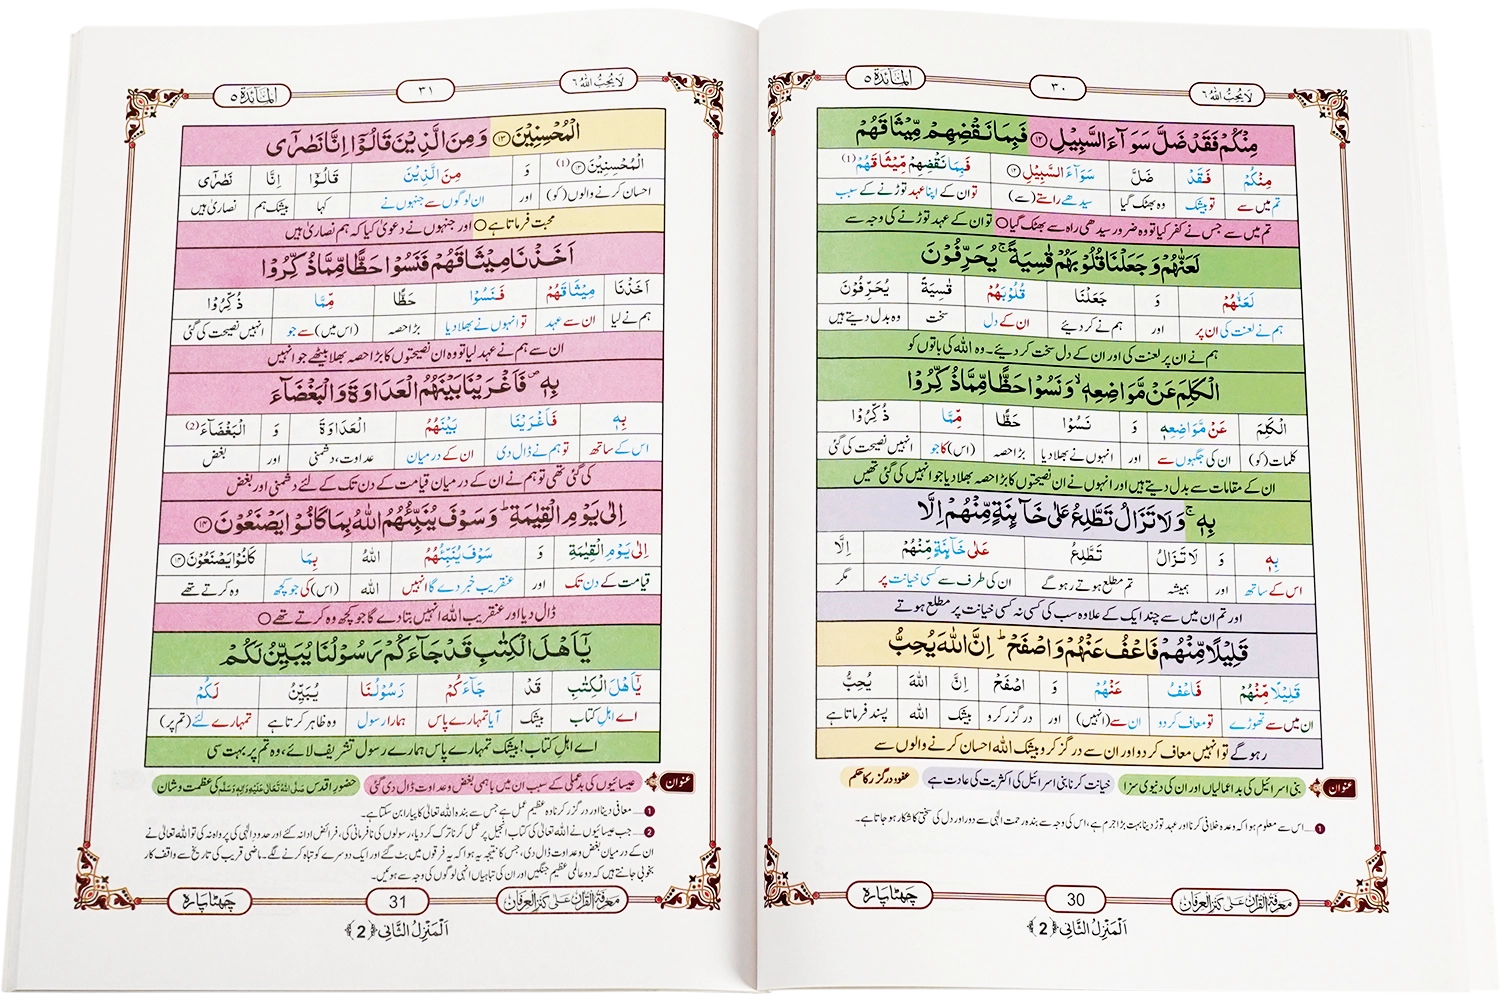 لَا یُحِبُّ اللہُ ٦
٣٠
اَلْمَآئِدَۃ ٥
مِنْكُمْ فَقَدْ ضَلَّ سَوَآءَ السَّبِیْلِ ﴿۱۲﴾ فَبِمَا نَقْضِهِمْ مِّیْثَاقَهُمْ
مِنْكُمْ فَقَدْ ضَلَّ سَوَآءَ السَّبِیْلِ ﴿۱۲﴾ فَبِمَا نَقْضِهِمْ مِّیْثَاقَهُمْ (1)
تم میں سے تو بیشک وہ بھٹک گیا سیدھے راستے (سے) تو ان کے اپنا عہد توڑنے کے سبب
تم میں سے جس نے کفر کیا تو وہ ضرور سیدھی راہ سے بھٹک گیا ○ تو ان کے عہد توڑنے کی وجہ سے
لَعَنّٰهُمْ وَ جَعَلْنَا قُلُوْبَهُمْ قٰسِیَةً ۚ یُحَرِّفُوْنَ
لَعَنّٰهُمْ وَ جَعَلْنَا قُلُوْبَهُمْ قٰسِیَةً یُحَرِّفُوْنَ
ہم نے لعنت کی ان پر اور ہم نے کر دئیے ان کے دل سخت وہ بدل دیتے ہیں
ہم نے ان پر لعنت کی اور ان کے دل سخت کر دئیے۔ وہ اللہ کی باتوں کو
الْكَلِمَ عَنْ مَّوَاضِعِهٖ ۙ وَ نَسُوْا حَظًّا مِّمَّا ذُكِّرُوْا
الْكَلِمَ عَنْ مَّوَاضِعِهٖ وَ نَسُوْا حَظًّا مِّمَّا ذُكِّرُوْا
کلمات (کو) ان کی جگہوں سے اور انہوں نے بھلا دیا بڑا حصہ (اس) کا جو انہیں نصیحت کی گئی
ان کے مقامات سے بدل دیتے ہیں اور انہوں نے ان نصیحتوں کا بڑا حصہ بھلا دیا جو انہیں کی گئی تھیں
بِهٖ ۚ وَ لَا تَزَالُ تَطَّلِعُ عَلٰی خَآىِٕنَةٍ مِّنْهُمْ اِلَّا
بِهٖ وَ لَا تَزَالُ تَطَّلِعُ عَلٰی خَآىِٕنَةٍ مِّنْهُمْ اِلَّا
اس کے ساتھ اور ہمیشہ تم مطلع ہوتے رہو گے ان کی طرف سے کسی خیانت پر مگر
اور تم ان میں سے چند ایک کے علاوہ سب کی کسی نہ کسی خیانت پر مطلع ہوتے
قَلِیْلًا مِّنْهُمْ فَاعْفُ عَنْهُمْ وَ اصْفَحْ ؕ اِنَّ اللہَ یُحِبُّ
قَلِیْلًا مِّنْهُمْ فَاعْفُ عَنْهُمْ وَ اصْفَحْ اِنَّ اللہَ یُحِبُّ
ان میں سے تھوڑے تو معاف کر دو ان سے (انہیں) اور درگزر کرو بیشک اللہ پسند فرماتا ہے
رہو گے تو انہیں معاف کر دو اور ان سے درگزر کرو بیشک اللہ احسان کرنے والوں سے
عنوان بنی اسرائیل کی بداعمالیاں اور ان کی دنیوی سزا خیانت کرنا بنی اسرائیل کی اکثریت کی عادت ہے عفو و درگزر کا حکم
1 ... اس سے معلوم ہوا کہ وعدہ خلافی کرنا اور عہد توڑ دینا بہت بڑا جرم ہے، اس کی وجہ سے بندہ رحمت الٰہی سے دور اور دل کی سختی کا شکار ہو جاتا ہے۔
معرفۃ القرآن علی کنز العرفان
30
چھٹا پارہ
اَلْمَنْزِلُ الثَّانِی ﴿2﴾
لَا یُحِبُّ اللہُ ٦
٣١
اَلْمَآئِدَۃ ٥
الْمُحْسِنِیْنَ ﴿۱۳﴾ وَ مِنَ الَّذِیْنَ قَالُوْۤا اِنَّا نَصٰرٰۤی
الْمُحْسِنِیْنَ ﴿۱۳﴾ (1) وَ مِنَ الَّذِیْنَ قَالُوْۤا اِنَّا نَصٰرٰۤی
احسان کرنے والوں (کو) اور ان لوگوں سے جنہوں نے کہا بیشک ہم نصاریٰ ہیں
محبت فرماتا ہے ○ اور جنہوں نے دعویٰ کیا کہ ہم نصاریٰ ہیں
اَخَذْنَا مِیْثَاقَهُمْ فَنَسُوْا حَظًّا مِّمَّا ذُكِّرُوْا
اَخَذْنَا مِیْثَاقَهُمْ فَنَسُوْا حَظًّا مِّمَّا ذُكِّرُوْا
ہم نے لیا ان سے عہد تو انہوں نے بھلا دیا بڑا حصہ (اس میں) سے جو انہیں نصیحت کی گئی
ان سے ہم نے عہد لیا تو وہ ان نصیحتوں کا بڑا حصہ بھلا بیٹھے جو انہیں
بِهٖ ۪ فَاَغْرَیْنَا بَیْنَهُمُ الْعَدَاوَةَ وَ الْبَغْضَآءَ
بِهٖ فَاَغْرَیْنَا بَیْنَهُمُ الْعَدَاوَةَ وَ الْبَغْضَآءَ (2)
اس کے ساتھ تو ہم نے ڈال دی ان کے درمیان عداوت، دشمنی اور بغض
کی گئی تھی تو ہم نے ان کے درمیان قیامت کے دن تک کے لئے دشمنی اور بغض
اِلٰی یَوْمِ الْقِیٰمَةِ ؕ وَ سَوْفَ یُنَبِّئُهُمُ اللہُ بِمَا كَانُوْا یَصْنَعُوْنَ ﴿۱۴﴾
اِلٰی یَوْمِ الْقِیٰمَةِ وَ سَوْفَ یُنَبِّئُهُمُ اللہُ بِمَا كَانُوْا یَصْنَعُوْنَ ﴿۱۴﴾
قیامت کے دن تک اور عنقریب خبر دے گا انہیں اللہ (اس) کی جو کچھ وہ کرتے تھے
ڈال دیا اور عنقریب اللہ انہیں بتا دے گا جو کچھ وہ کرتے تھے ○
یٰۤاَهْلَ الْكِتٰبِ قَدْ جَآءَكُمْ رَسُوْلُنَا یُبَیِّنُ لَكُمْ
یٰۤاَهْلَ الْكِتٰبِ قَدْ جَآءَكُمْ رَسُوْلُنَا یُبَیِّنُ لَكُمْ
اے اہل کتاب بیشک آیا تمہارے پاس ہمارا رسول وہ ظاہر کرتا ہے تمہارے لئے (تم پر)
اے اہل کتاب! بیشک تمہارے پاس ہمارے رسول تشریف لائے، وہ تم پر بہت سی
عنوان عیسائیوں کی بدعملی کے سبب ان میں باہمی بغض و عداوت ڈال دی گئی حضور اقدس صَلَّی اللہُ تَعَالٰی عَلَیْہِ وَاٰلِہٖ وَسَلَّم کی عظمت و شان
1 ... معافی دینا اور درگزر کرنا وہ عظیم عمل ہے جس سے بندہ اللہ تعالیٰ کا پیارا بن سکتا ہے۔
2 ... جب عیسائیوں نے اللہ تعالیٰ کی کتاب انجیل پر عمل کرنا ترک کر دیا، رسولوں کی نافرمانی کی، فرائض ادا نہ کئے اور حدود الٰہی کی پرواہ نہ کی تو اللہ تعالیٰ نے
ان کے درمیان بغض و عداوت ڈال دی، جس کا نتیجہ یہ ہوا کہ یہ فرقوں میں بٹ گئے اور ایک دوسرے کو تباہ کرنے لگے۔ ماضی قریب کی تاریخ سے واقف کار
بخوبی جانتے ہیں کہ دو عالمی عظیم جنگیں اور ان کی تباہیاں انہی لوگوں کی وجہ سے ہوئیں۔
معرفۃ القرآن علی کنز العرفان
31
چھٹا پارہ
اَلْمَنْزِلُ الثَّانِی ﴿2﴾